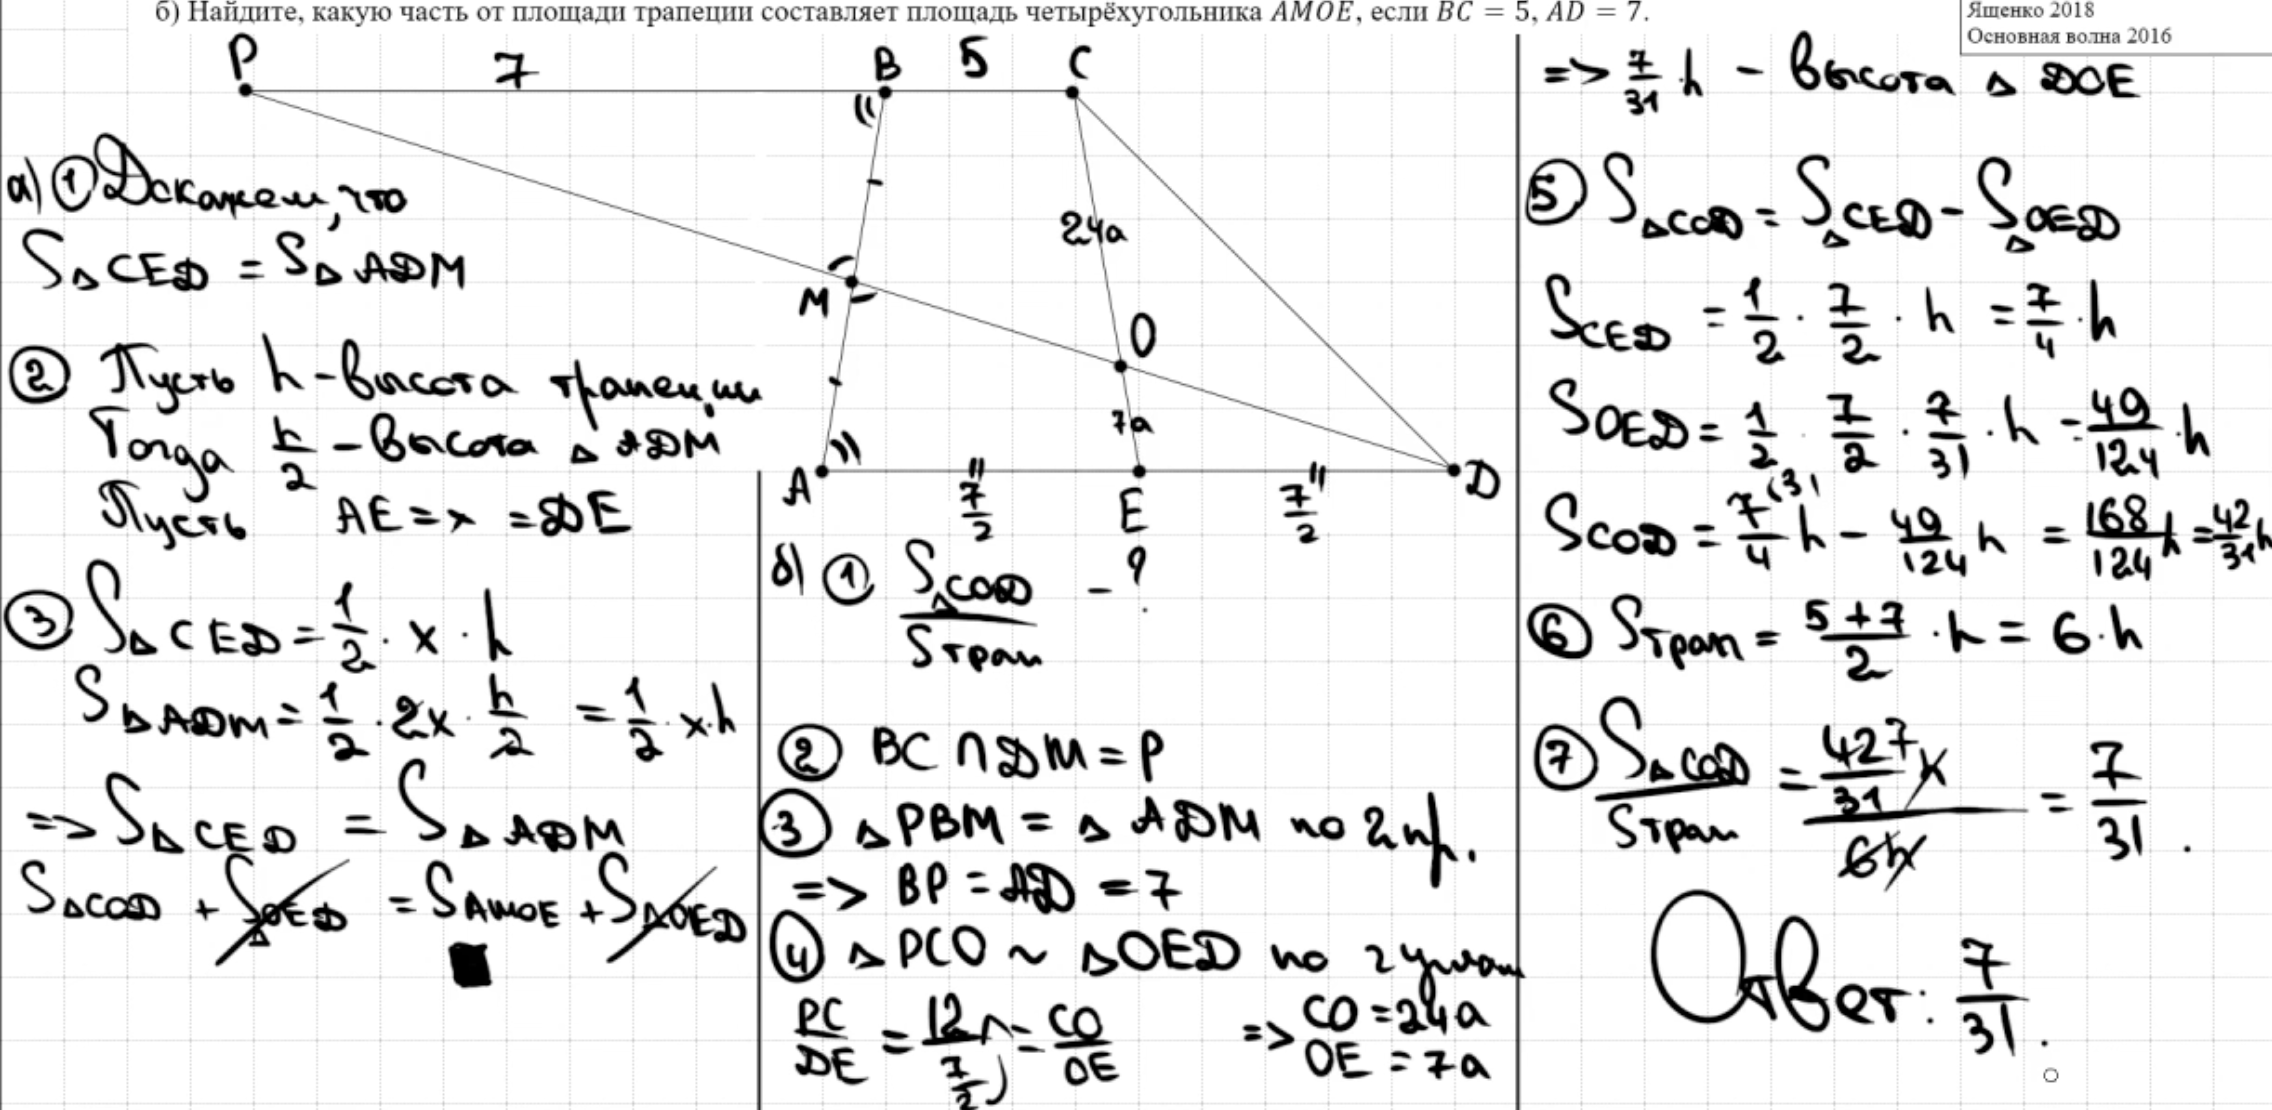 б) Найдите, какую часть от площади трапеции составляет площадь четырёхугольника AMOE, если BC = 5, AD = 7.
Ященко 2018
Основная волна 2016
P 7 B 5 C
24a
M
O
7a
A 7/2 E 7/2 D
а) ① Докажем, что
S△CED = S△ADM
② Пусть h - высота трапеции
Тогда h/2 - высота △ADM
Пусть AE = x = DE
③ S△CED = 1/2 · x · h
S△ADM = 1/2 · 2x · h/2 = 1/2 · x · h
=> S△CED = S△ADM
S△COD + S△OED = SAMOE + S△OED
б) ① S△COD/Sтрап - ?
② BC ∩ DM = P
③ △PBM = △ADM по 2 пр.
=> BP = AD = 7
④ △PCO ~ △OED по 2 углам
PC/DE = 12/(7/2) = CO/OE => CO = 24a
OE = 7a
=> 7/31 h - высота △DOE
⑤ S△COD = S△CED - S△OED
SCED = 1/2 · 7/2 · h = 7/4 · h
SOED = 1/2 · 7/2 · 7/31 · h = 49/124 · h
SCOD = 7/4 (31 h - 49/124 h = 168/124 h = 42/31 h
⑥ Sтрап = (5+7)/2 · h = 6 · h
⑦ S△COD/Sтрап = (42 7/31 h)/(6h) = 7/31.
Ответ: 7/31.